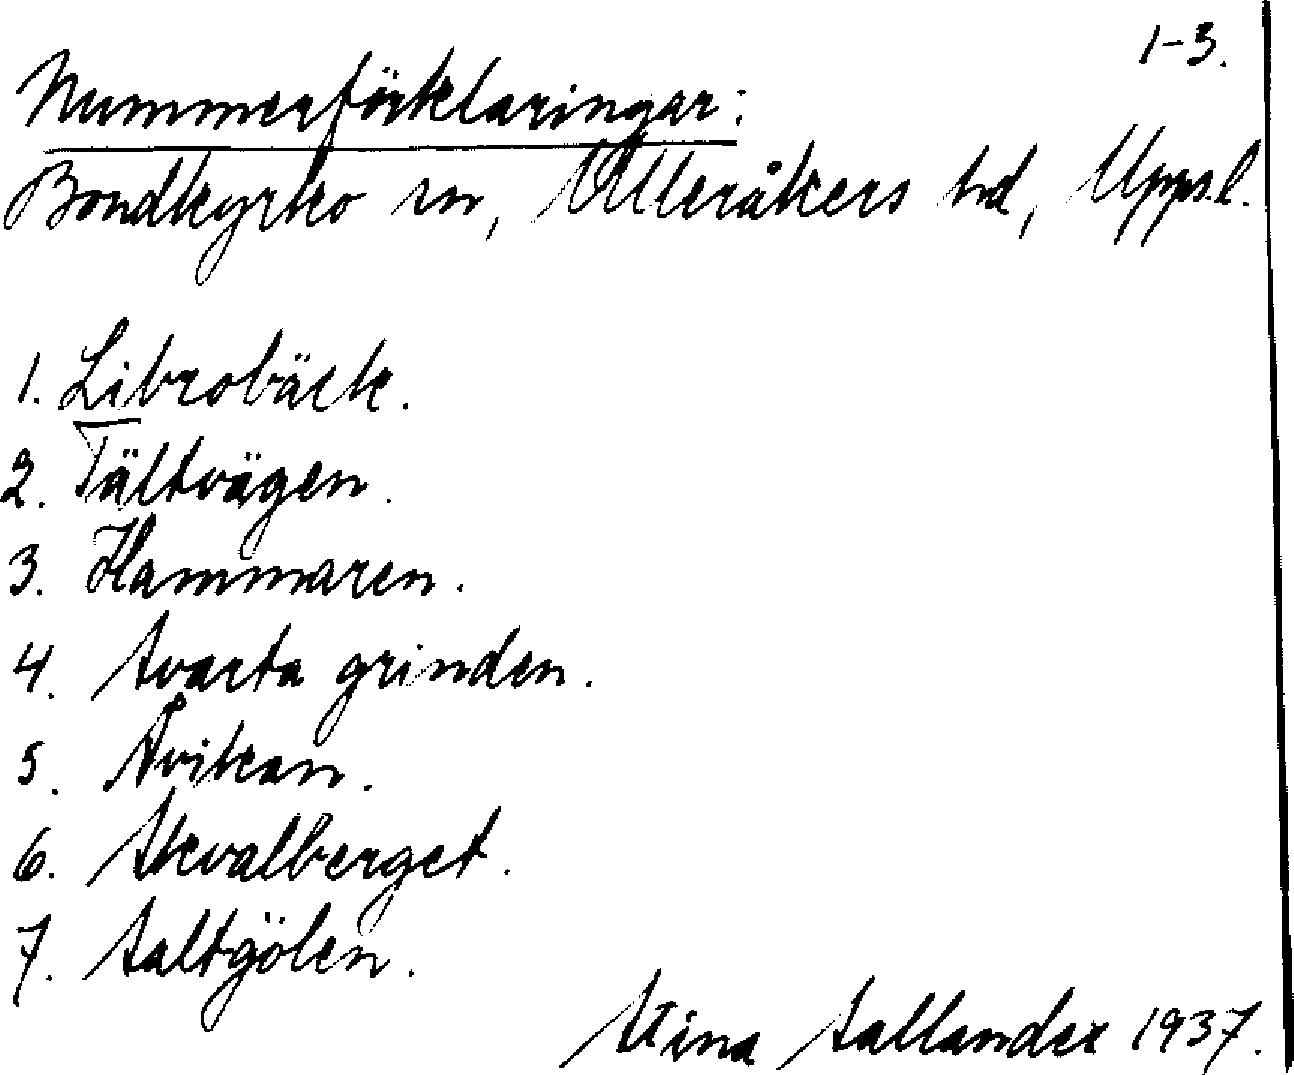 1-3.
Nummerförklaringar:
Bondkyrko sn, Ulleråkers hd, Uppl.
1. Librobäck.
2. Tältvägen.
3. Hammaren.
4. Svarta grinden.
5.
6. Skvalberget.
7. Saltgölen.
Stina Sallander 1937.